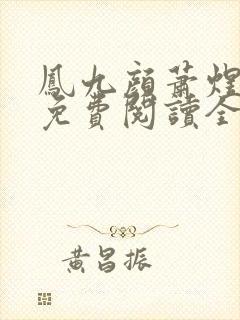 鳳九顏蕭煌
免費閱讀全
黃昌振